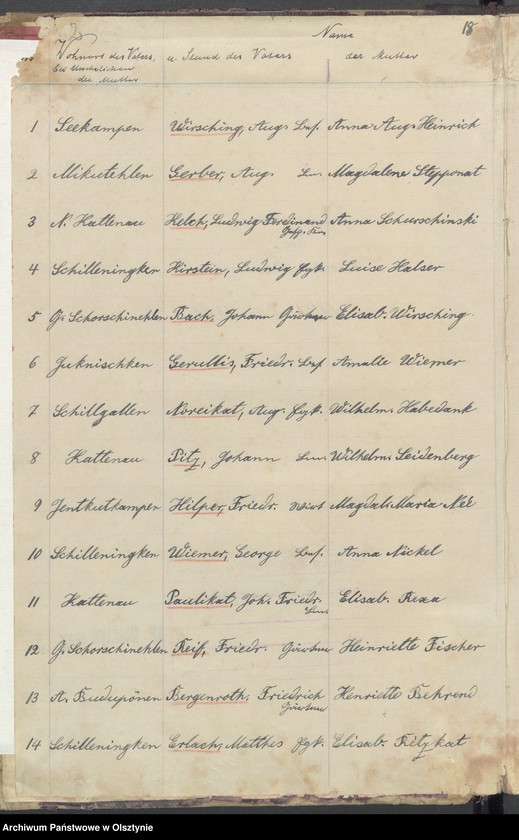 Name
18
Wohnort des Vaters, u. Stand des Vaters der Mutter
bei Unehelichen
der Mutter
1 Seekampen Wirsching, Aug. Anna Aug. Heinrich
2 Mikutehlen Gerber, Aug. Magdalene Stepponat
3 N. Kattenau Kelch, Ludwig Ferdinand Anna Schurschinski
4 Schilleningken Kirstein, Ludwig Luise Halser
5 Gr. Schorschinehlen Bach, Johann Elisab. Wirsching
6 Juknischken Gerullis, Friedr. Amalie Wiemer
7 Schillgallen Noreikat, Aug. Wilhelm. Habedank
8 Kattenau Pitz, Johann Wilhelm. Seidenberg
9 Jentkutkampen Hilper, Friedr. Wirt Magdal. Maria
10 Schilleningken Wiemer, George Anna Näckel
11 Kattenau Paulikat, Joh. Friedr. Elisab. Rexa
12 G. Schorschinehlen Reif, Friedr. Heinriette Fischer
13 A. Budupönen Bergenroth, Friedrich Henriette Behrend
14 Schilleningken Erlach, Matthes Elisab. Ritzkat
Archiwum Państwowe w Olsztynie